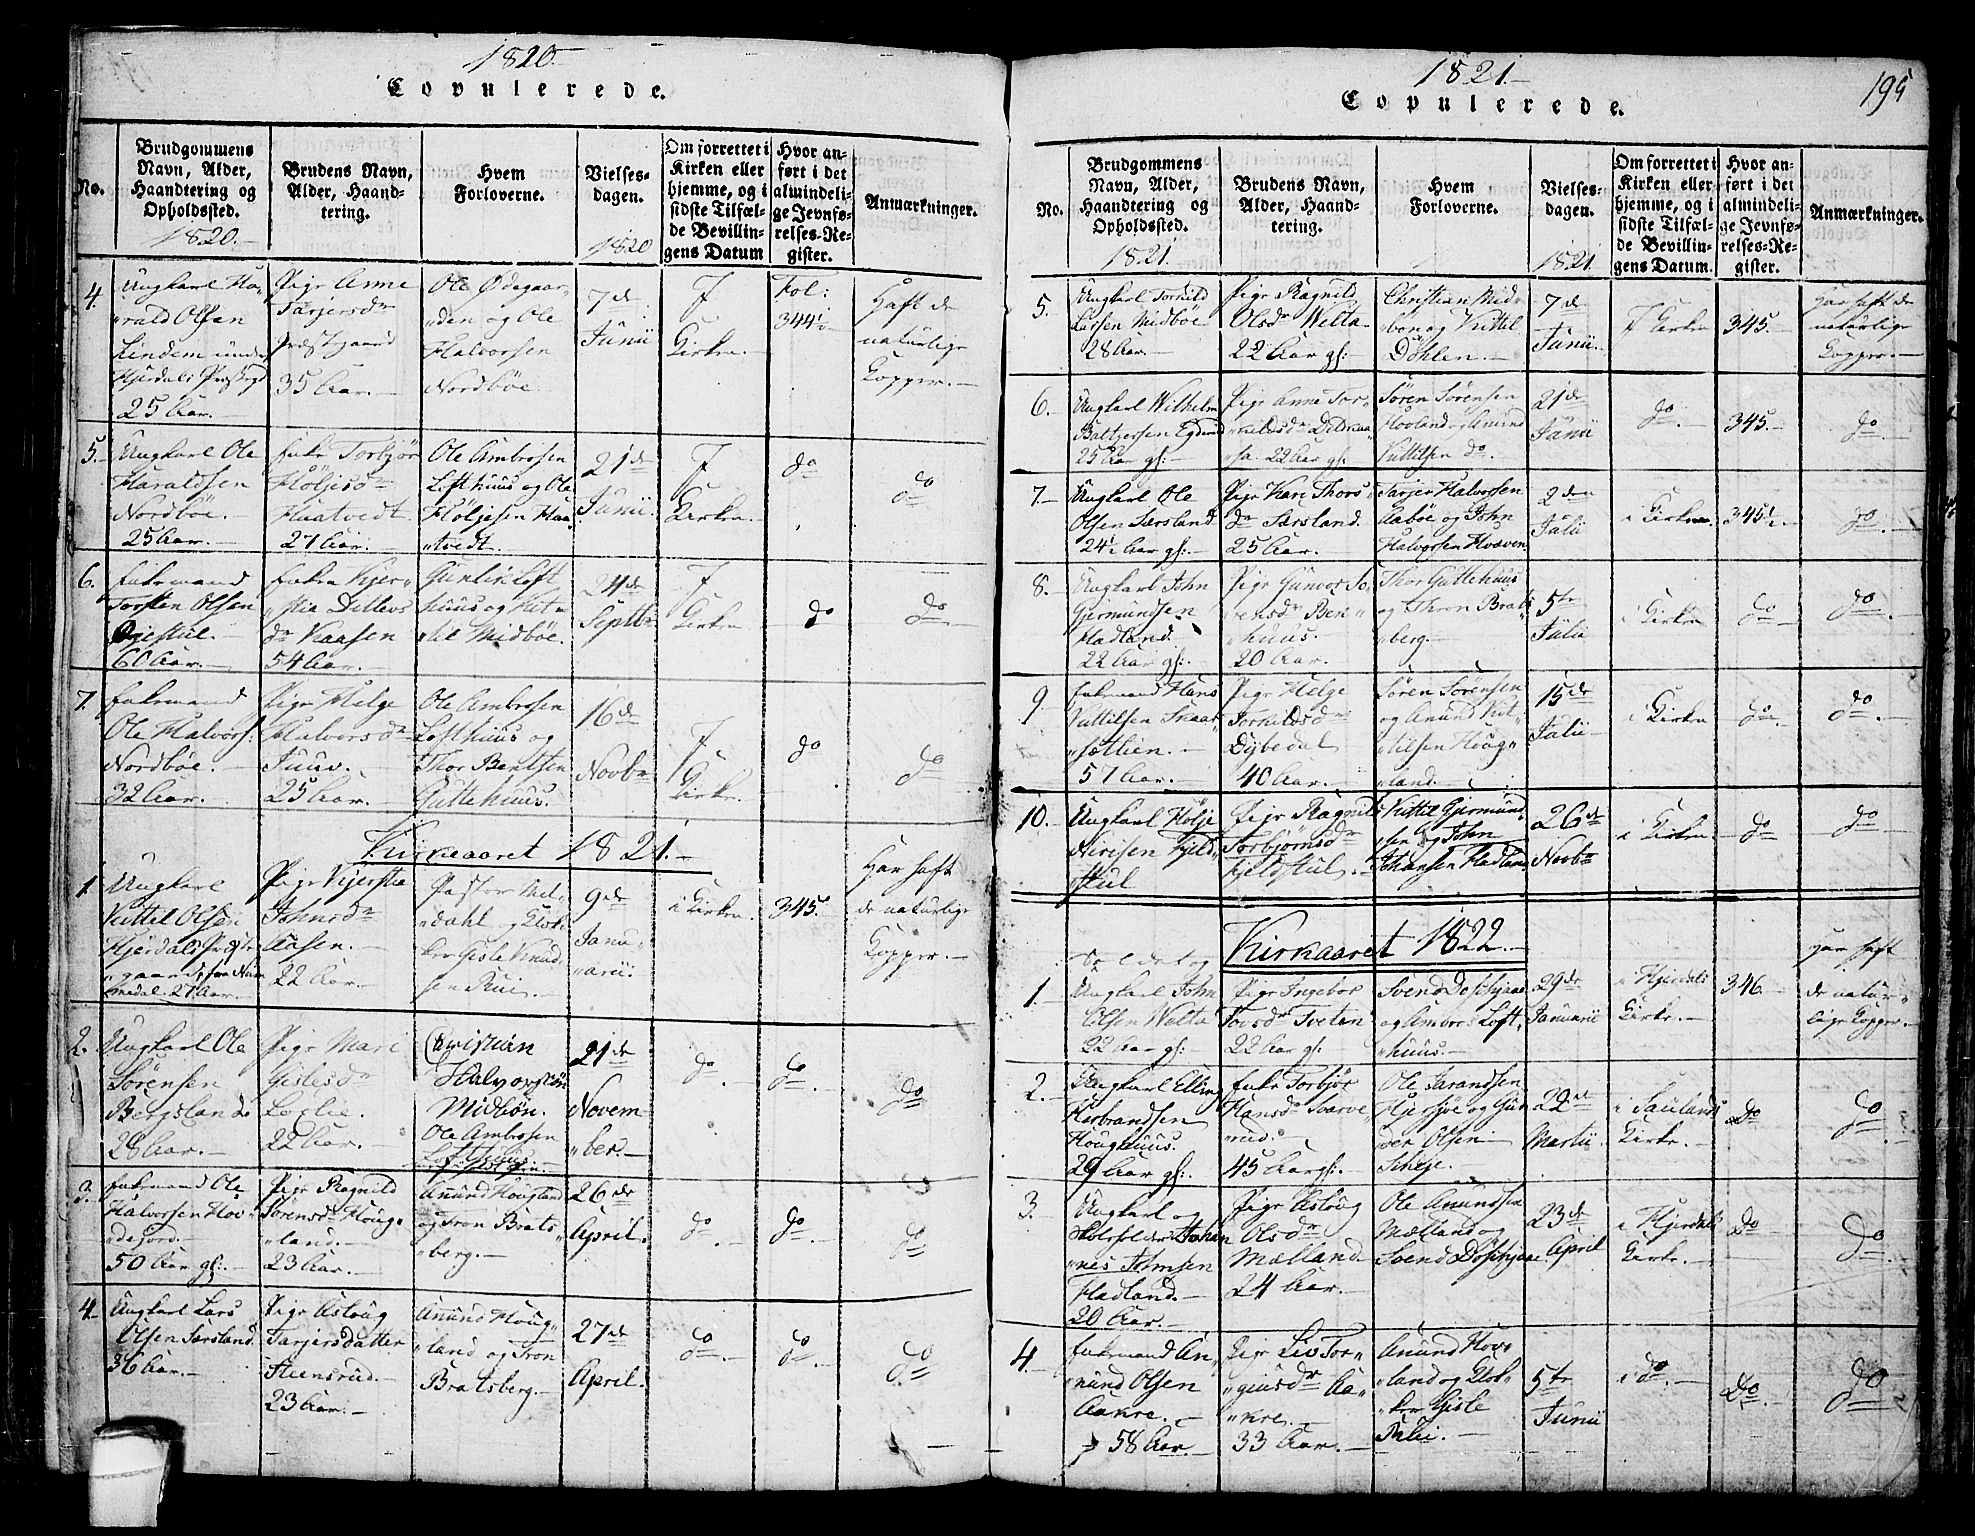 1820.
Copulerede.
No.
Brudgommens Navn, Alder, Haandtering og Opholdssted.
1820.
Brudens Navn, Alder, Haandtering.
Hvem Forloverne.
Vielsesdagen.
1820
Om forrettet i Kirken eller hjemme, og i sidste Tilfælde Bevillingens Datum
Hvor anført i det almindelige Jevnførelses-Register.
Anmærkninger.
4.
Ungkarl Ha„
rald Olsen
Lindem under
Hjerdals
25 Aar.
Pige Anne
Tarjersdr
Præstgaard
35 Aar.
Ole Ødegaar„
„den og Ole
Halvorsen
Nordbøe.
7de
Junii
I
Kirken.
Fol:
344½
Haft de
naturlige
Kopper.
5.
Ungkarl Ole
Haraldsen
Nordbøe.
25 Aar.
Enke Torbjør
Höljesdr
Haatvedt.
27 Aar.
Ole Ambrosen
Lofthuus og Ole
Höljesen Haa„
„tvedt.
21de
Junii.
I
Kirken.
do
do
6.
Enkemand
Torsten Olsen
60 Aar.
Enken Kjer„
„stie Detlevs
dr Kaasen
54 Aar.
Gunlik Loft
huus og Kit„
til Midbøe.
24de
Septbr
I
Kirken
do
do
7.
Enkemand
Ole Halvors:
Nordbøe.
32 Aar.
Pige Helge
Halvorsdr
Juuv.
25 Aar.
Ole Ambrosen
Lofthuus og
Thor Bentsen
Guttehuus.
16de
Novbr
I
Kirken.
do
do
Kirkeaaret 1821.
1.
Ungkarl
Kittil Olsen
Hjerdals Præste
gaard,
medal. 27 Aar.
Pige Kjerstie
Johnsdr
Aasen.
22 Aar.
Pastor Mel„
„dahl og Klok„
ker Gisle Knud
sen
9de
Janu„
„arii.
i Kirken.
345.
Har haft
de naturlige
Kopper.
2.
Ungkarl Ole
Sörensen
Bergsland.
28 Aar.
Pige Mari
Gislesdr
Lonlie.
22 Aar.
Christian
Halvorsen
Midbön.
Ole Ambrosen
Lofthuus.
21de
Novem„
„ber.
do
do
do
3.
Enkemand Ole
Halvorsen Hov„
„dejord.
50 Aar gl:
Pige Ragnild
Sorensdr Houg„
„land.
23 Aar.
Anund Hougland
og Tron Brats„
„berg.
26de
April.
do
do
do
4.
Ungkarl Lars
Olsen Særsland.
36 Aar.
Pige Asloug
Tarjersdatter
Steensrud.
23 Aar.
Anund Houg„
„land og Tron
Bratsberg.
27de
April.
do
do
do
1821.
195
Copulerede.
No.
Brudgommens Navn, Alder, Haandtering og Opholdssted.
1821.
Brudens Navn, Alder, Haandtering.
Hvem Forloverne.
Vielsesdagen.
1821.
Om forrettet i Kirken eller hjemme, og i sidste Tilfælde Bevillingens Datum.
Hvor anført i det almindelige Jevnførelses-Register.
Anmærkninger.
5.
Ungkarl Torkild
Larsen Midböe
28 Aar.
Pige Ragnild
Olsdr Welta
22 Aar gl:
Christian Mid„
„bön og Kittil
Döhlen.
7de
Junii.
I Kirken
345.
Har haft de
naturlige
Kopper.
6.
Ungkarl Wilhelm
Baltzersen
25 Aar gl:
Pige Anne Tor„
„kildsdr
22 Aar gl:
Sören Sörensen
Hovland og Anund
Kittilsen do.
21de
Junii
do.
345.
do.
7.
Ungkarl Ole
Olsen Særsland.
24½ Aar gl:
Pige Kari Thors„
dr Særsland.
25 Aar.
Tarjer Halvorsen
Aaböe og John
Halvorsen
2den
Julii
i Kirken.
345½.
do.
8.
Ungkarl John
Gjermundsen
Hadland.
22 Aar gl:
Pige Gunvor
20 Aar.
Thor Guttehuus
og Thron Brats„
„berg.
5te
Julii
i Kirken
do
do
9
Enkemand Hans
Kittilsen
57 Aar.
Pige Helge
Torkildsdr
Dybedal
40 Aar.
Sören Sörensen
og Anund Kit„
„tilsen Houg„
„land.
15de
Julii
i Kirken
do.
do.
10.
Ungkarl Hölje
Nirisen Fjeld„
stul
Pige Ragnild
Torbjörnsdr
Fjeldstul.
Kittil Gjermund„
sen og John
Johansen Hadland
26de
Novbr
i Kirken.
do
do
Kirkaaret 1822.
1.
Soldat og
Ungkarl John
Olsen Welta
22 Aar gl:
Pige Ingebor
Tovsdr Tveten
22 Aar gl:
Svend
og Ambros Loft„
„huus.
29de
Januarii
i Hjerdals
Kirke.
346.
Har haft
de natur„
lige Kopper.
2.
Ungkarl Elling
Herbrandsen
Houghuus.
29 Aar gl:
Enke Torbjör
Hansdr Svarve„
„rud.
45 Aar gl:
Ole Jarandsen
Hjersjöe og Gun
Olsen
22de
Martii.
i Saulands
Kirke.
Do
do
3.
Ungkarl og
Skoleholder Johan
nes Johnsen
Hadland.
20 Aar.
Pige Aslaug
Olsdr
Mælland
24 Aar.
Ole Anundsen
Mælland og
Svend
23de
April
i Hjerdals
Kirke.
Do
do
4
Enkemand An„
„und Olsen
Aakre.
58 Aar.
Pige Liv Tor„
„giusdr Aa„
„kre.
33 Aar.
Anund Hov„
„land og Klok„
„ker Gisle
5te
Junii
i do.
Do.
do